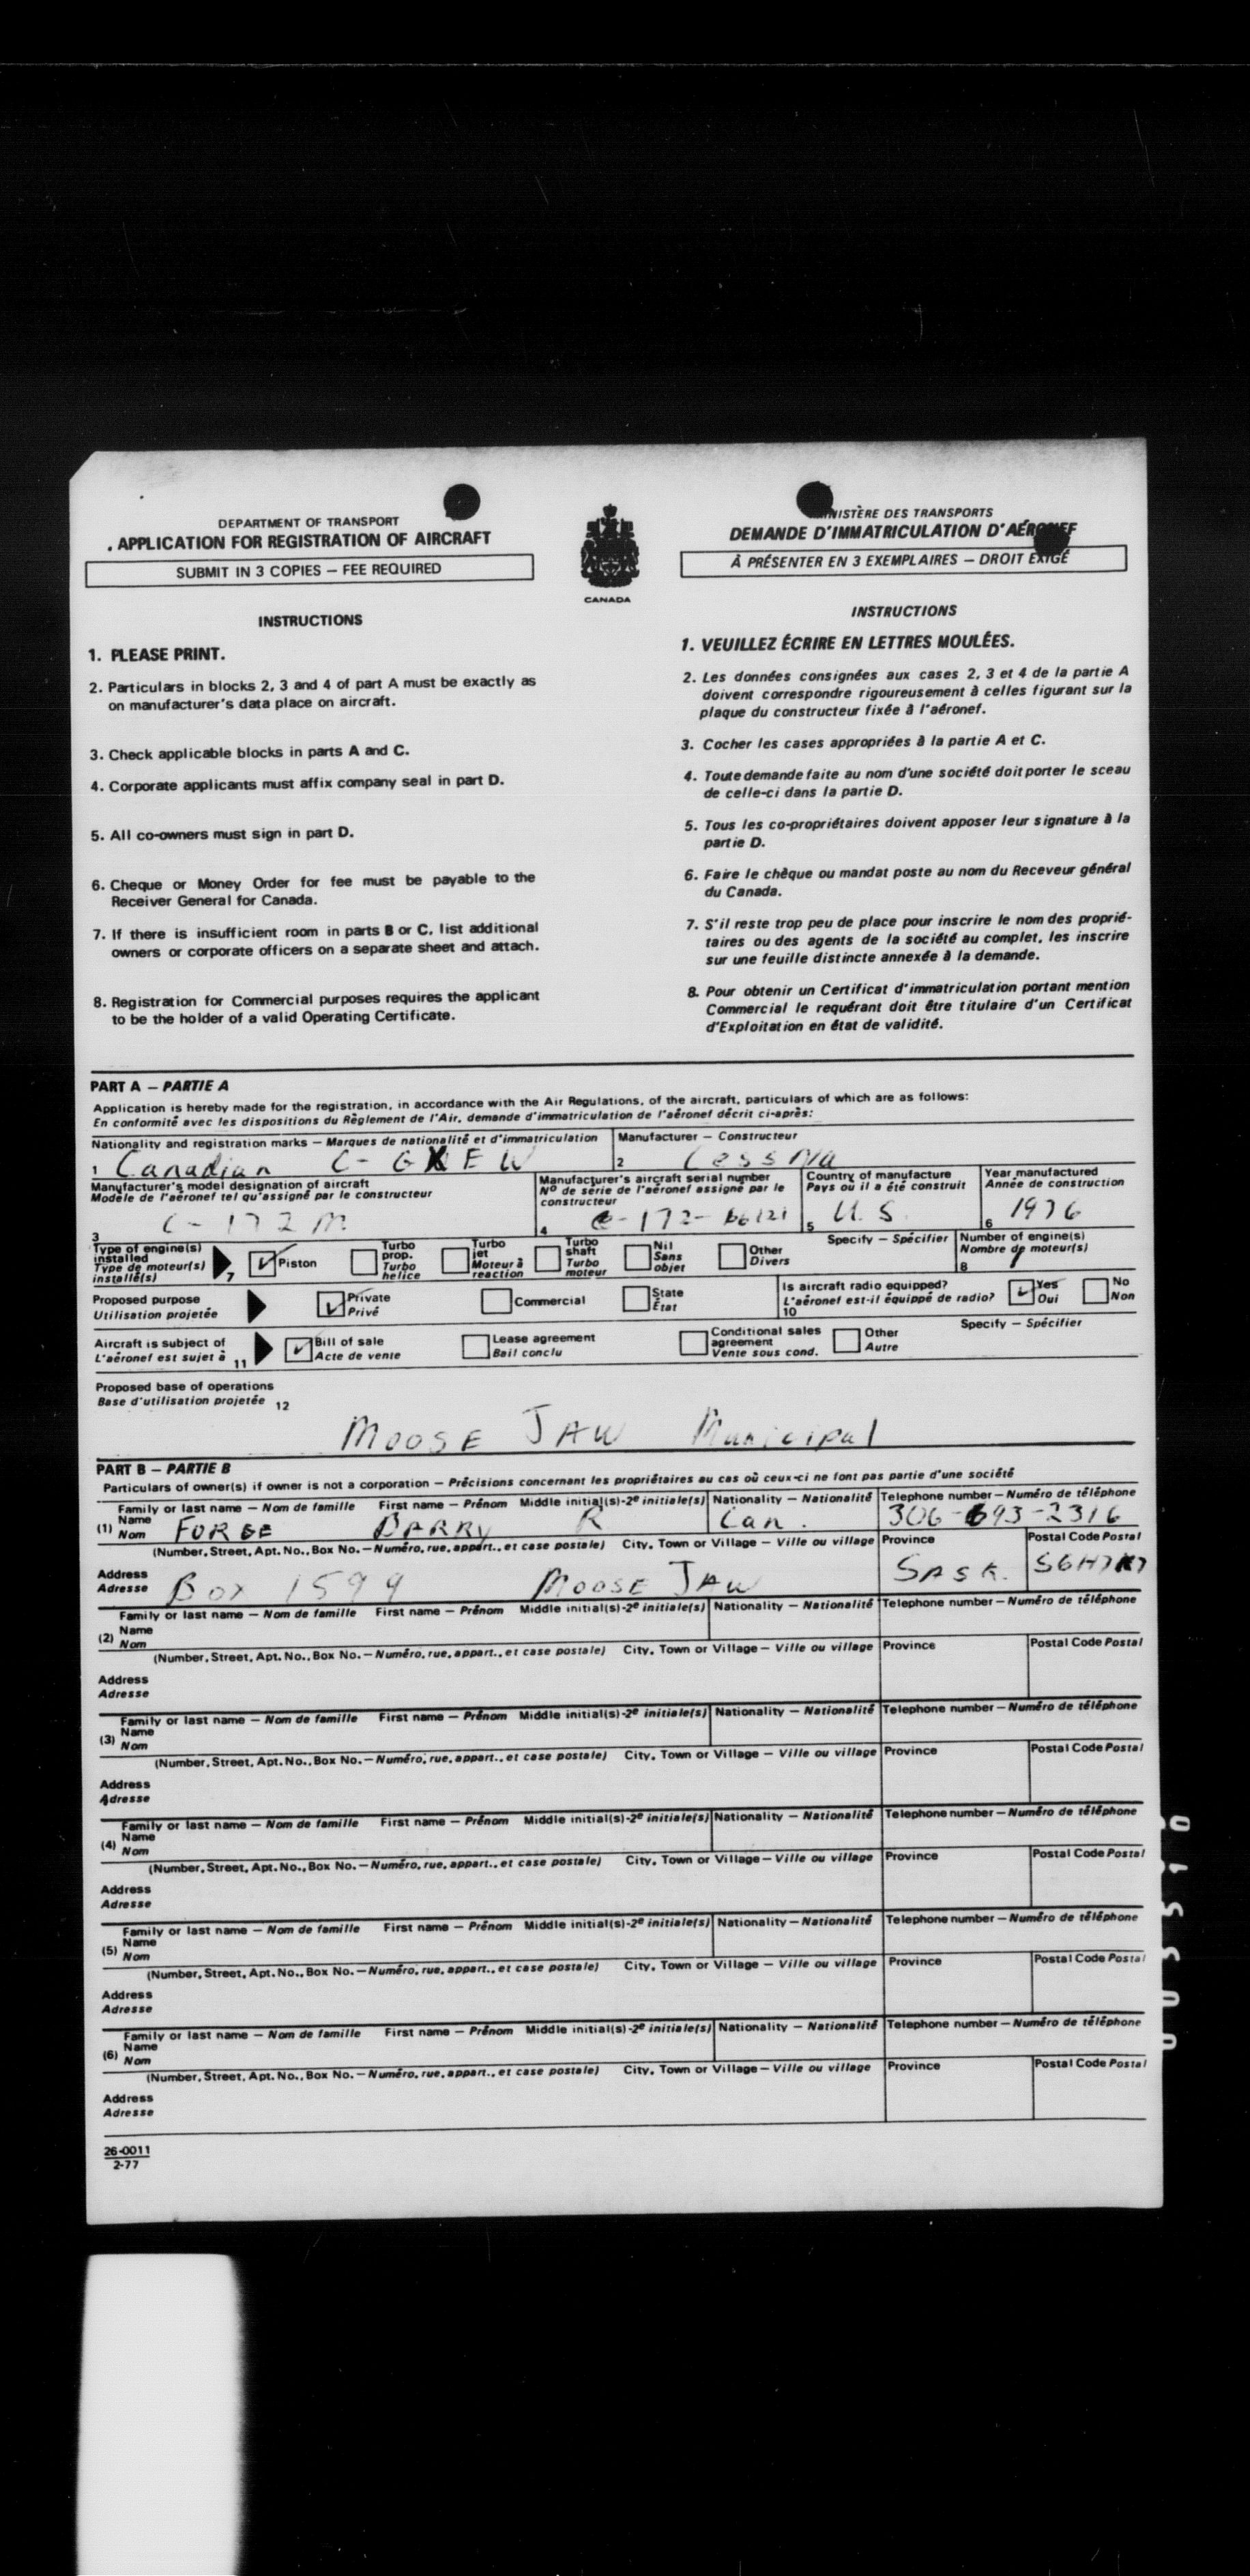 DEPARTMENT OF TRANSPORT
APPLICATION FOR REGISTRATION OF AIRCRAFT
SUBMIT IN 3 COPIES – FEE REQUIRED
CANADA
MINISTÈRE DES TRANSPORTS
DEMANDE D'IMMATRICULATION D'AÉRONEF
À PRÉSENTER EN 3 EXEMPLAIRES – DROIT EXIGÉ
INSTRUCTIONS
1. PLEASE PRINT.
2. Particulars in blocks 2, 3 and 4 of part A must be exactly as
on manufacturer's data place on aircraft.
3. Check applicable blocks in parts A and C.
4. Corporate applicants must affix company seal in part D.
5. All co-owners must sign in part D.
6. Cheque or Money Order for fee must be payable to the
Receiver General for Canada.
7. If there is insufficient room in parts B or C, list additional
owners or corporate officers on a separate sheet and attach.
8. Registration for Commercial purposes requires the applicant
to be the holder of a valid Operating Certificate.
INSTRUCTIONS
1. VEUILLEZ ÉCRIRE EN LETTRES MOULÉES.
2. Les données consignées aux cases 2, 3 et 4 de la partie A
doivent correspondre rigoureusement à celles figurant sur la
plaque du constructeur fixée à l'aéronef.
3. Cocher les cases appropriées à la partie A et C.
4. Toute demande faite au nom d'une société doit porter le sceau
de celle-ci dans la partie D.
5. Tous les co-propriétaires doivent apposer leur signature à la
partie D.
6. Faire le chèque ou mandat poste au nom du Receveur général
du Canada.
7. S'il reste trop peu de place pour inscrire le nom des proprié-
taires ou des agents de la société au complet, les inscrire
sur une feuille distincte annexée à la demande.
8. Pour obtenir un Certificat d'immatriculation portant mention
Commercial le requérant doit être titulaire d'un Certificat
d'Exploitation en état de validité.
PART A – PARTIE A
Application is hereby made for the registration, in accordance with the Air Regulations, of the aircraft, particulars of which are as follows:
En conformité avec les dispositions du Règlement de l'Air, demande d'immatriculation de l'aéronef décrit ci-après:
Nationality and registration marks – Marques de nationalité et d'immatriculation
1 Canadian C-GXEW
Manufacturer – Constructeur
2 Cessna
Manufacturer's model designation of aircraft
Modèle de l'aéronef tel qu'assigné par le constructeur
3 C-172M
Manufacturer's aircraft serial number
Nº de série de l'aéronef assigné par le
constructeur
4 172-66121
Country of manufacture
Pays où il a été construit
5 U.S.
Year manufactured
Année de construction
6 1976
Type of engine(s)
installed
Type de moteur(s)
installé(s)
7
✓ Piston
Turbo
prop.
Turbo
hélice
Turbo
jet
Moteur à
réaction
Turbo
shaft
Turbo
moteur
Nil
Sans
objet
Other
Divers
Specify – Spécifier
Number of engine(s)
Nombre de moteur(s)
8 1
Proposed purpose
Utilisation projetée
✓ Private
Privé
Commercial
State
État
Is aircraft radio equipped?
L'aéronef est-il équippé de radio?
10
✓ Yes
Oui
No
Non
Aircraft is subject of
L'aéronef est sujet à 11
✓ Bill of sale
Acte de vente
Lease agreement
Bail conclu
Conditional sales
agreement
Vente sous cond.
Other
Autre
Specify – Spécifier
Proposed base of operations
Base d'utilisation projetée 12
MOOSE JAW Municipal
PART B – PARTIE B
Particulars of owner(s) if owner is not a corporation – Précisions concernant les propriétaires au cas où ceux-ci ne font pas partie d'une société
Family or last name – Nom de famille First name – Prénom Middle initial(s)-2e initiale(s) Nationality – Nationalité Telephone number – Numéro de téléphone
(1) Name
Nom FORGE BARRY R Can. 306-693-2316
(Number, Street, Apt. No., Box No. – Numéro, rue, appart., et case postale) City, Town or Village – Ville ou village Province Postal Code Postal
Address
Adresse Box 1599 MOOSE JAW SASK. S6H7K7
Family or last name – Nom de famille First name – Prénom Middle initial(s)-2e initiale(s) Nationality – Nationalité Telephone number – Numéro de téléphone
(2) Name
Nom
(Number, Street, Apt. No., Box No. – Numéro, rue, appart., et case postale) City, Town or Village – Ville ou village Province Postal Code Postal
Address
Adresse
Family or last name – Nom de famille First name – Prénom Middle initial(s)-2e initiale(s) Nationality – Nationalité Telephone number – Numéro de téléphone
(3) Name
Nom
(Number, Street, Apt. No., Box No. – Numéro, rue, appart., et case postale) City, Town or Village – Ville ou village Province Postal Code Postal
Address
Adresse
Family or last name – Nom de famille First name – Prénom Middle initial(s)-2e initiale(s) Nationality – Nationalité Telephone number – Numéro de téléphone
(4) Name
Nom
(Number, Street, Apt. No., Box No. – Numéro, rue, appart., et case postale) City, Town or Village – Ville ou village Province Postal Code Postal
Address
Adresse
Family or last name – Nom de famille First name – Prénom Middle initial(s)-2e initiale(s) Nationality – Nationalité Telephone number – Numéro de téléphone
(5) Name
Nom
(Number, Street, Apt. No., Box No. – Numéro, rue, appart., et case postale) City, Town or Village – Ville ou village Province Postal Code Postal
Address
Adresse
Family or last name – Nom de famille First name – Prénom Middle initial(s)-2e initiale(s) Nationality – Nationalité Telephone number – Numéro de téléphone
(6) Name
Nom
(Number, Street, Apt. No., Box No. – Numéro, rue, appart., et case postale) City, Town or Village – Ville ou village Province Postal Code Postal
Address
Adresse
26-0011
2-77